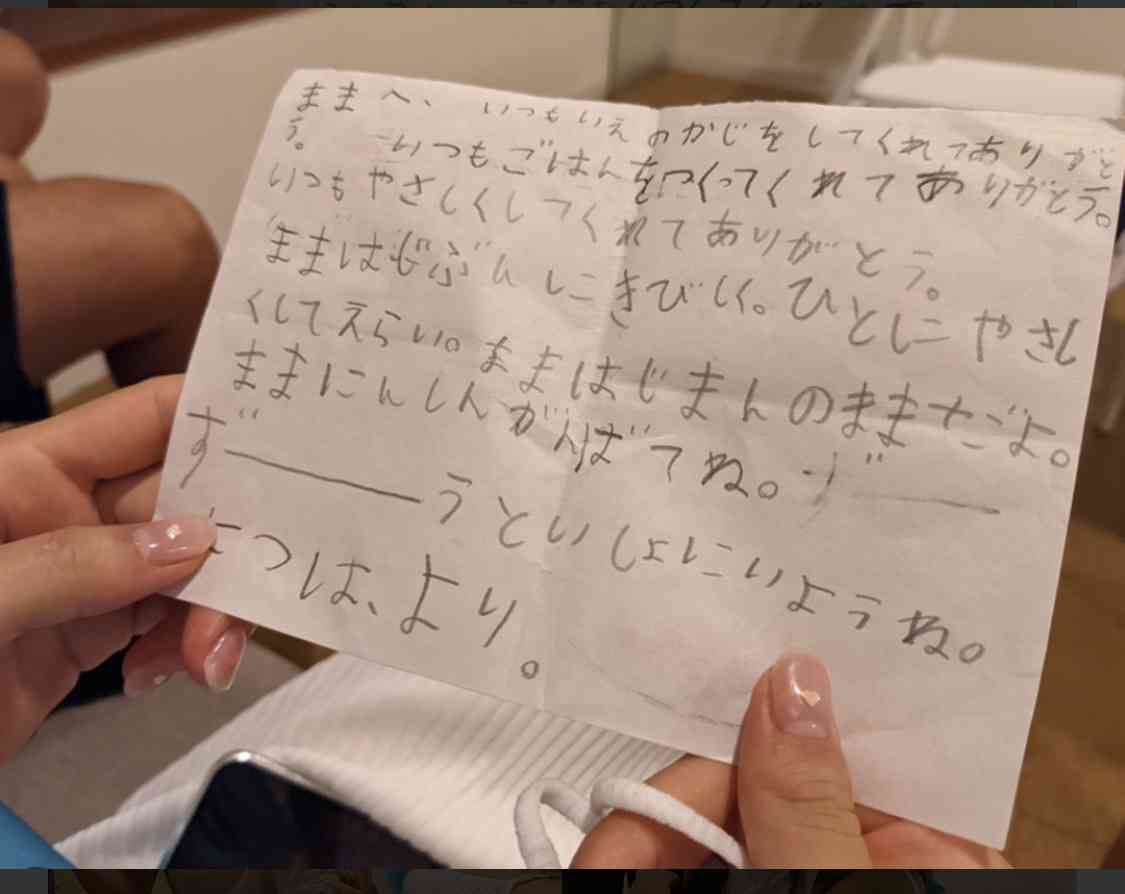 ままへ、いつもいえのかじをしてくれてありがと
う。いつもごはんをつくってくれてありがとう。
いつもやさしくしてくれてありがとう。
ままはじぶんにきびしく。ひとにやさし
くしてえらい。ままはじまんのままだよ。
ままにんしんがんばてね。ずー
ずーうといしょにいようね。
より。